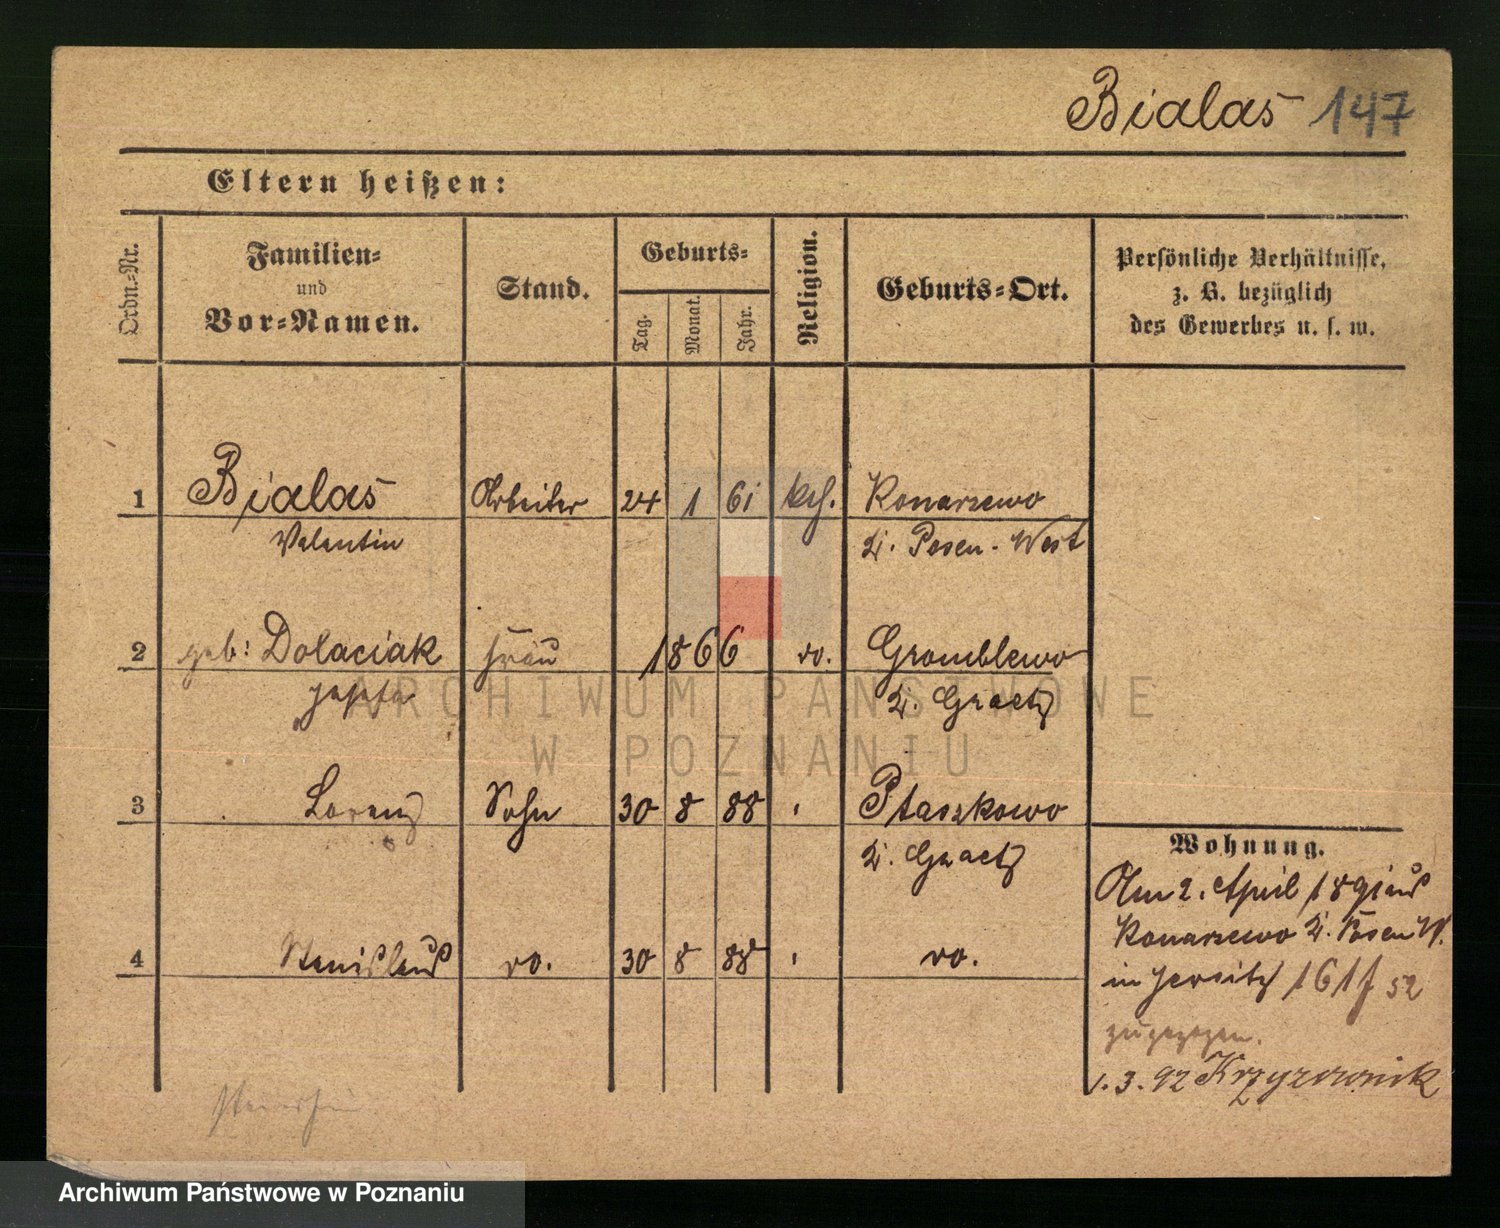 Bialas 147
Eltern heißen:
Ordn.-Nr.
Familien-
und
Vor-Namen.
Stand.
Geburts-
Tag.
Monat.
Jahr.
Religion.
Geburts-Ort.
Persönliche Verhältnisse,
z. B. bezüglich
des Gewerbes u. s. w.
1 Bialas Arbeiter 24 1 61 kth. Konarzewo
Valentin Kr. Posen-West
2 geb: Dolaciak Frau 1866 do. Gromblewo
Josefa Kr. Graetz
3 Lorenz Sohn 30 8 88 Ptaszkowo
Kr. Graetz
4 Stanislaus do. 30 8 88 do.
Wohnung.
Am 2. April 1891 aus
Konarzewo Kr. Posen W.
in Jersitz 52
zugezogen.
1.3.92 Krzyzownik
ARCHIWUM PAŃSTWOWE
W POZNANIU
Archiwum Państwowe w Poznaniu